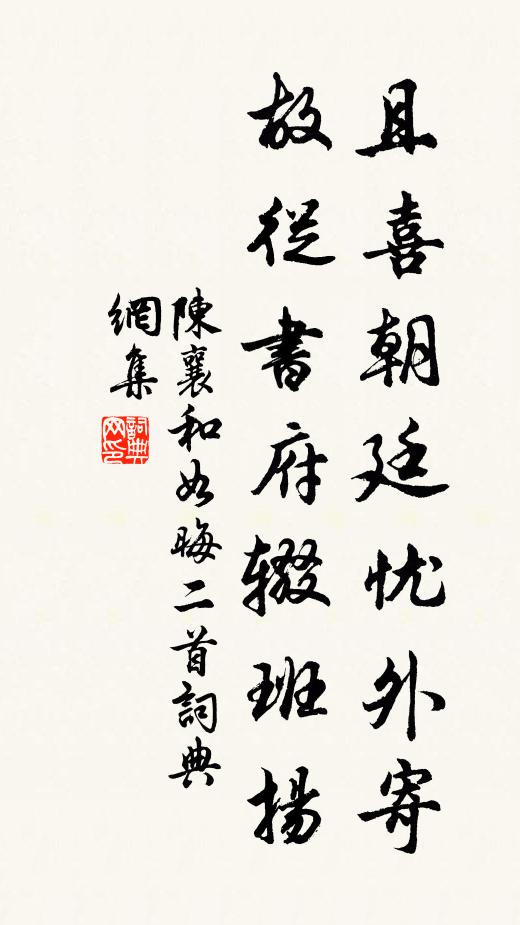 且喜朝廷忧外寄
故從書府辍班揚
陳襄和如晦二首詞典
網集
詞典
网印